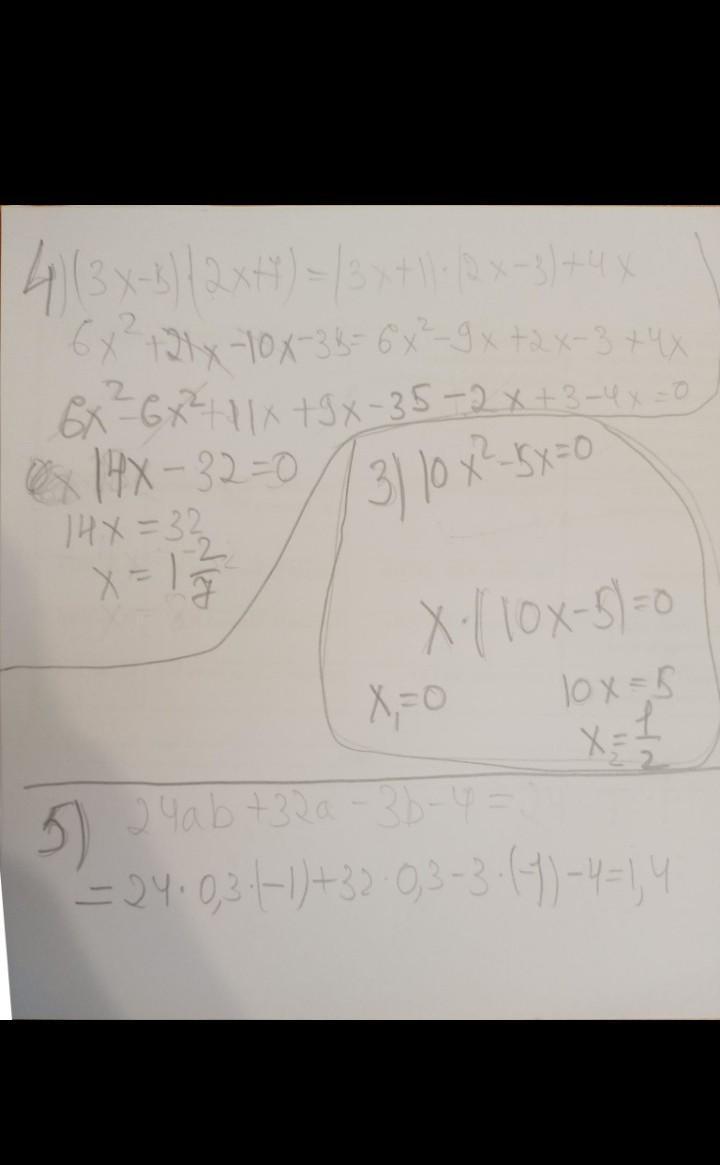 4) (3x-5)(2x+7)=(3x+1)·(2x-3)+4x
6x²+21x-10x-35=6x²-9x+2x-3+4x
6x²-6x²+11x+9x-35-2x+3-4x=0
14x-32=0
14x=32
x=1 2/7
3) 10x²-5x=0
x·(10x-5)=0
x₁=0 10x=5
x₂=1/2
5) 24ab+32a-3b-4=
=24·0,3·(-1)+32·0,3-3·(-1)-4=1,4